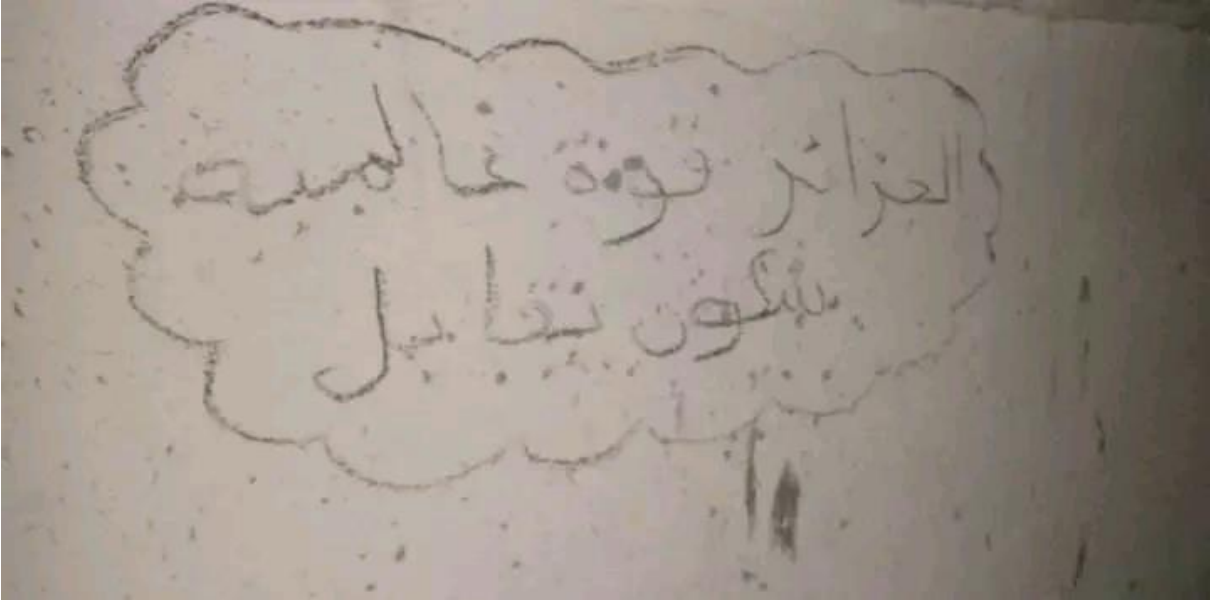 الجزائر قوة عالمية
شكون تقابل